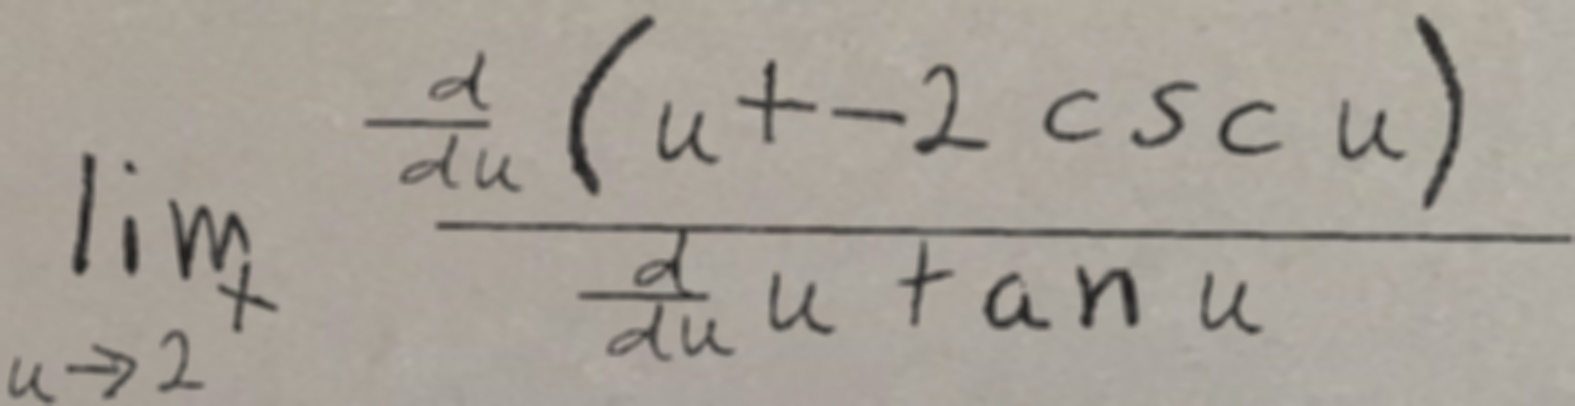 $\lim_{u \to 2^+} \frac{\frac{d}{du}\left(u + -2 \csc u\right)}{\frac{d}{du} u \tan u}$